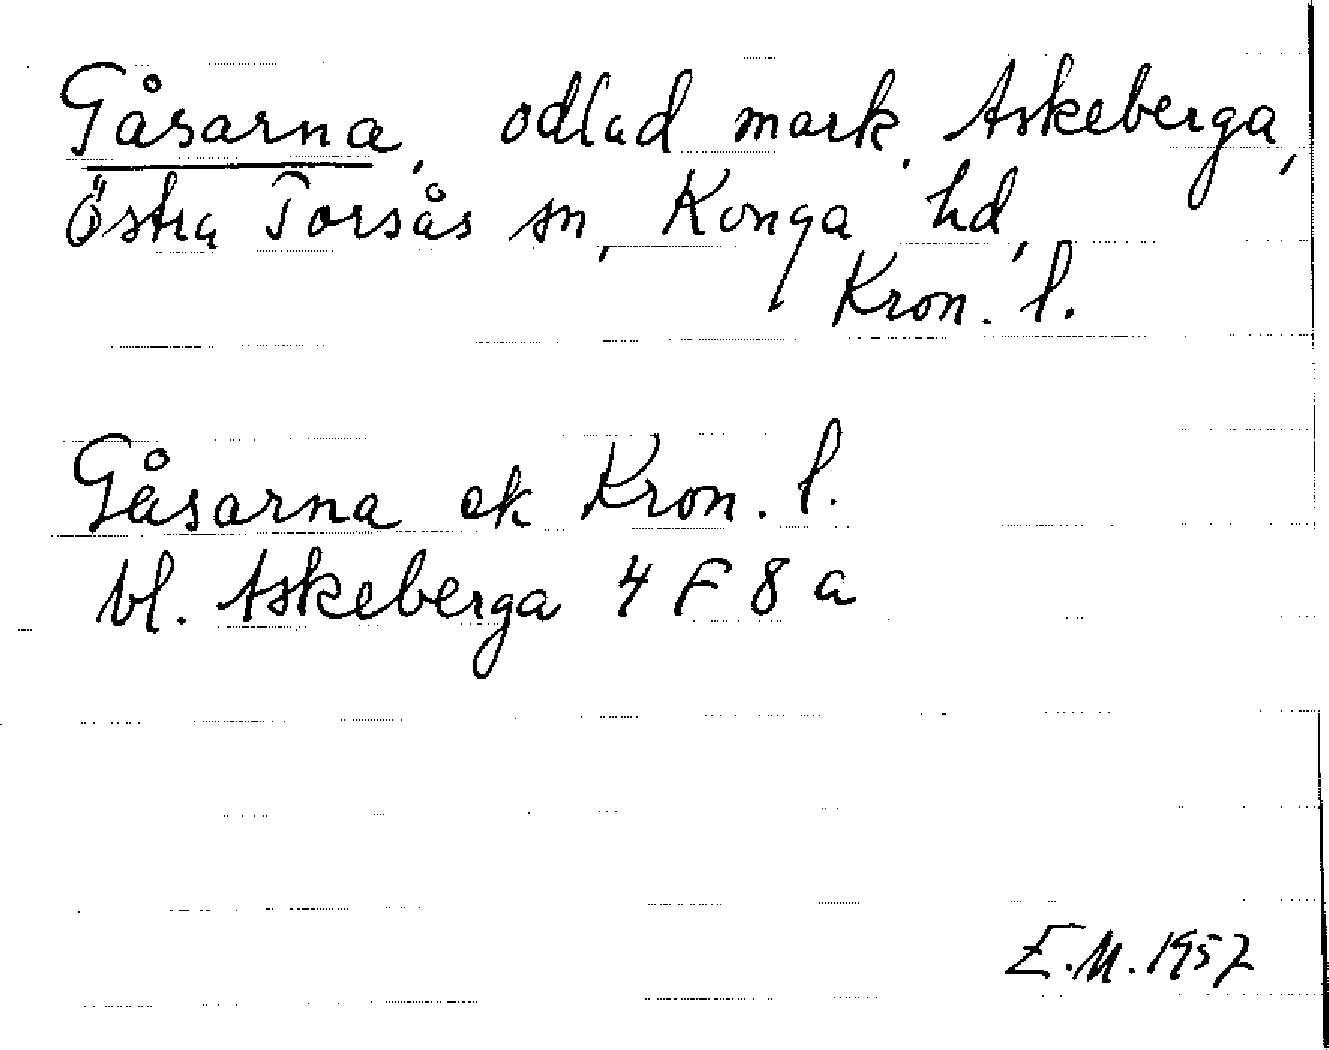 Gåsarna, odlad mark, Askeberga,
Östra Torsås sn, Konga hd,
Kron. l.
Gåsarna ek Kron. l.
bl. Askeberga 4 F 8 a
E.M. 1957